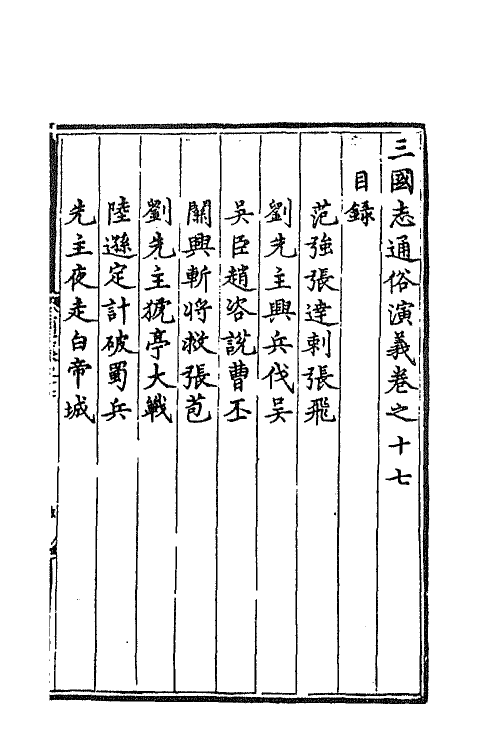 三國志通俗演義卷之十七
目録
范強張達刺張飛
劉先主興兵伐吳
吳臣趙咨說曹丕
關興斬將救張苞
劉先主猇亭大戰
陸遜定計破蜀兵
先主夜走白帝城